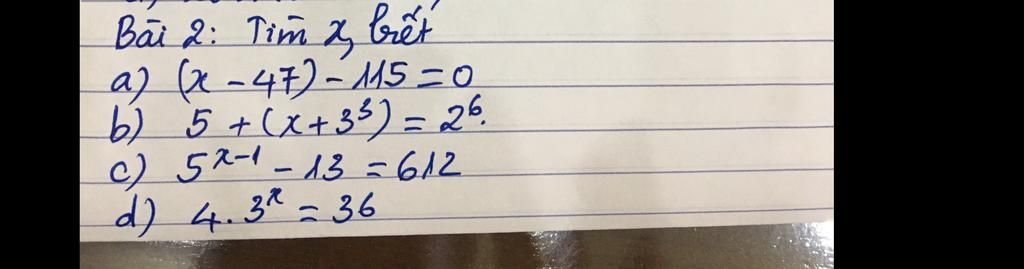 Bài 2: Tìm x, biết
a) (x - 47) - 115 = 0
b) 5 + (x + 3³) = 2⁶.
c) 5ˣ⁻¹ - 13 = 612
d) 4. 3ˣ = 36